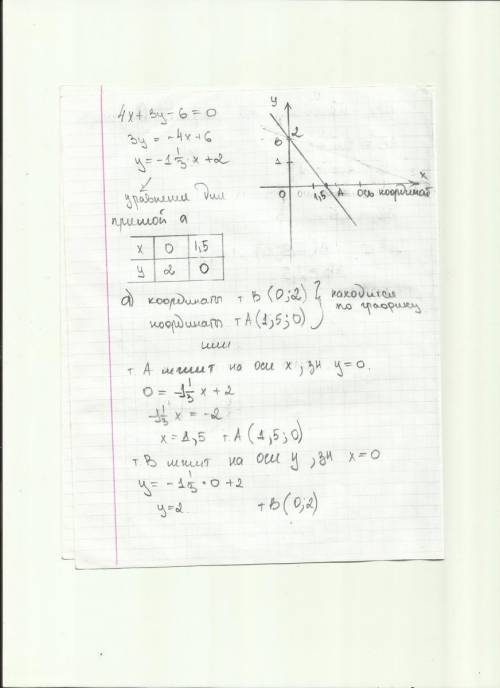 4x + 3y - 6 = 0
3y = -4x + 6
y = -1 1/3 · x + 2
уравнение для
прямой а
y
2
B
1
0
1,5
A
x
ось координат
x 0 1,5
y 2 0
а) координаты т B (0; 2)
координаты т A (1,5; 0)
} находится
по графику
или
т. A лежит на оси x, зн y = 0.
0 = -1 1/3 x + 2
1 1/3 x = -2
x = 1,5 т. A (1,5; 0)
т. B лежит на оси y, зн x = 0
y = -1 1/3 · 0 + 2
y = 2 т B (0; 2)